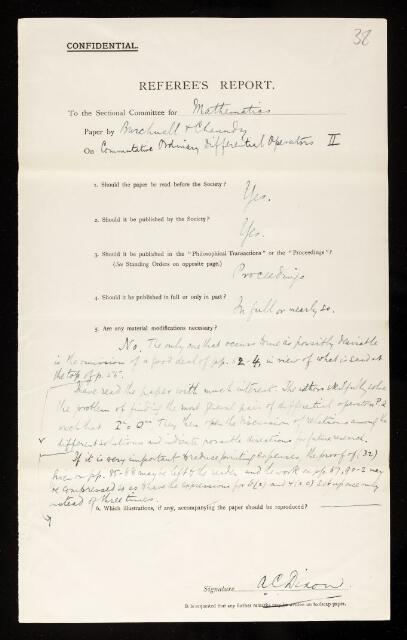 38
CONFIDENTIAL.
REFEREE'S REPORT.
To the Sectional Committee for Mathematics
Paper by Burchnall & Chaundy
On Commutative Ordinary Differential Operators II
1. Should the paper be read before the Society?
Yes.
2. Should it be published by the Society?
Yes.
3. Should it be published in the "Philosophical Transactions" or the "Proceedings"?
(See Standing Orders on opposite page.)
Proceedings
4. Should it be published in full or only in part?
In full or nearly so.
5. Are any material modifications necessary?
No. The only one that occurs to me as possibly desirable
is the omission of a good deal of pp. 2-4, in view of what is said at
the top of p. 55.
I have read the paper with much interest. The authors skilfully solve
the problem of finding the most general pair of differential operators
such that They then open the discussion of relations among the
different solutions and indicate possible directions for future research.
If it is very important to reduce printing expenses the proof of (32)
given on pp. 85-88 may be left to the reader and the work on pp. 89, 90-2 may
be compressed so as to have the expressions for set up once only
instead of three times.
6. Which illustrations, if any, accompanying the paper should be reproduced?
Signature A.C. Dixon.
It is requested that any further remarks may be written on foolscap paper.